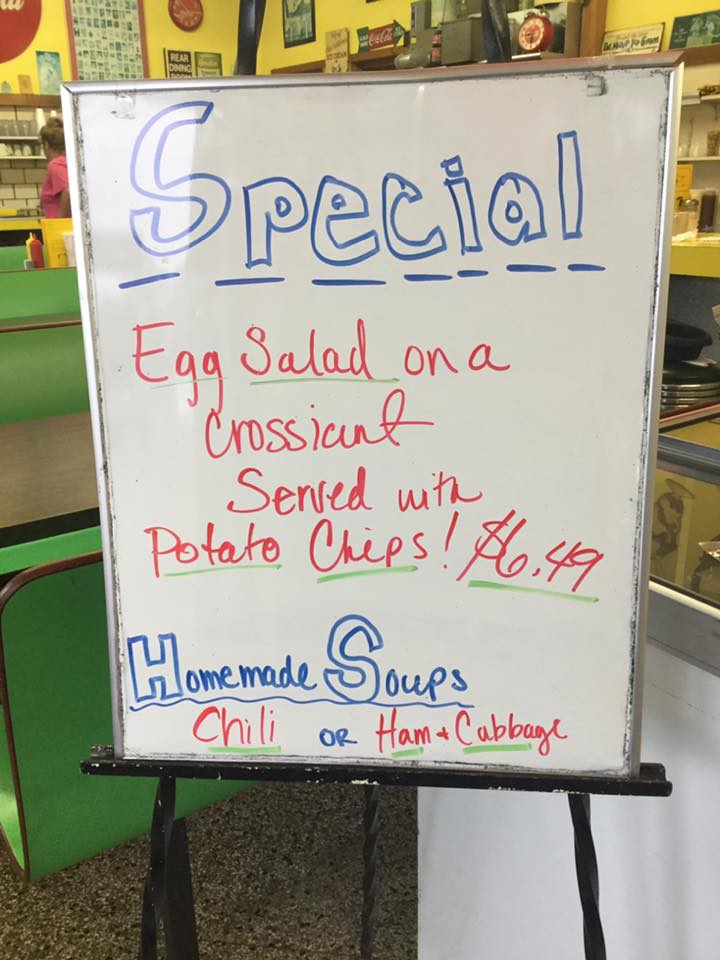 REAR
DINING
ROOM
Coca-Cola
Special
Egg Salad on a
Crossiant
Served with
Potato Chips! $6.49
Homemade Soups
Chili OR Ham & Cabbage